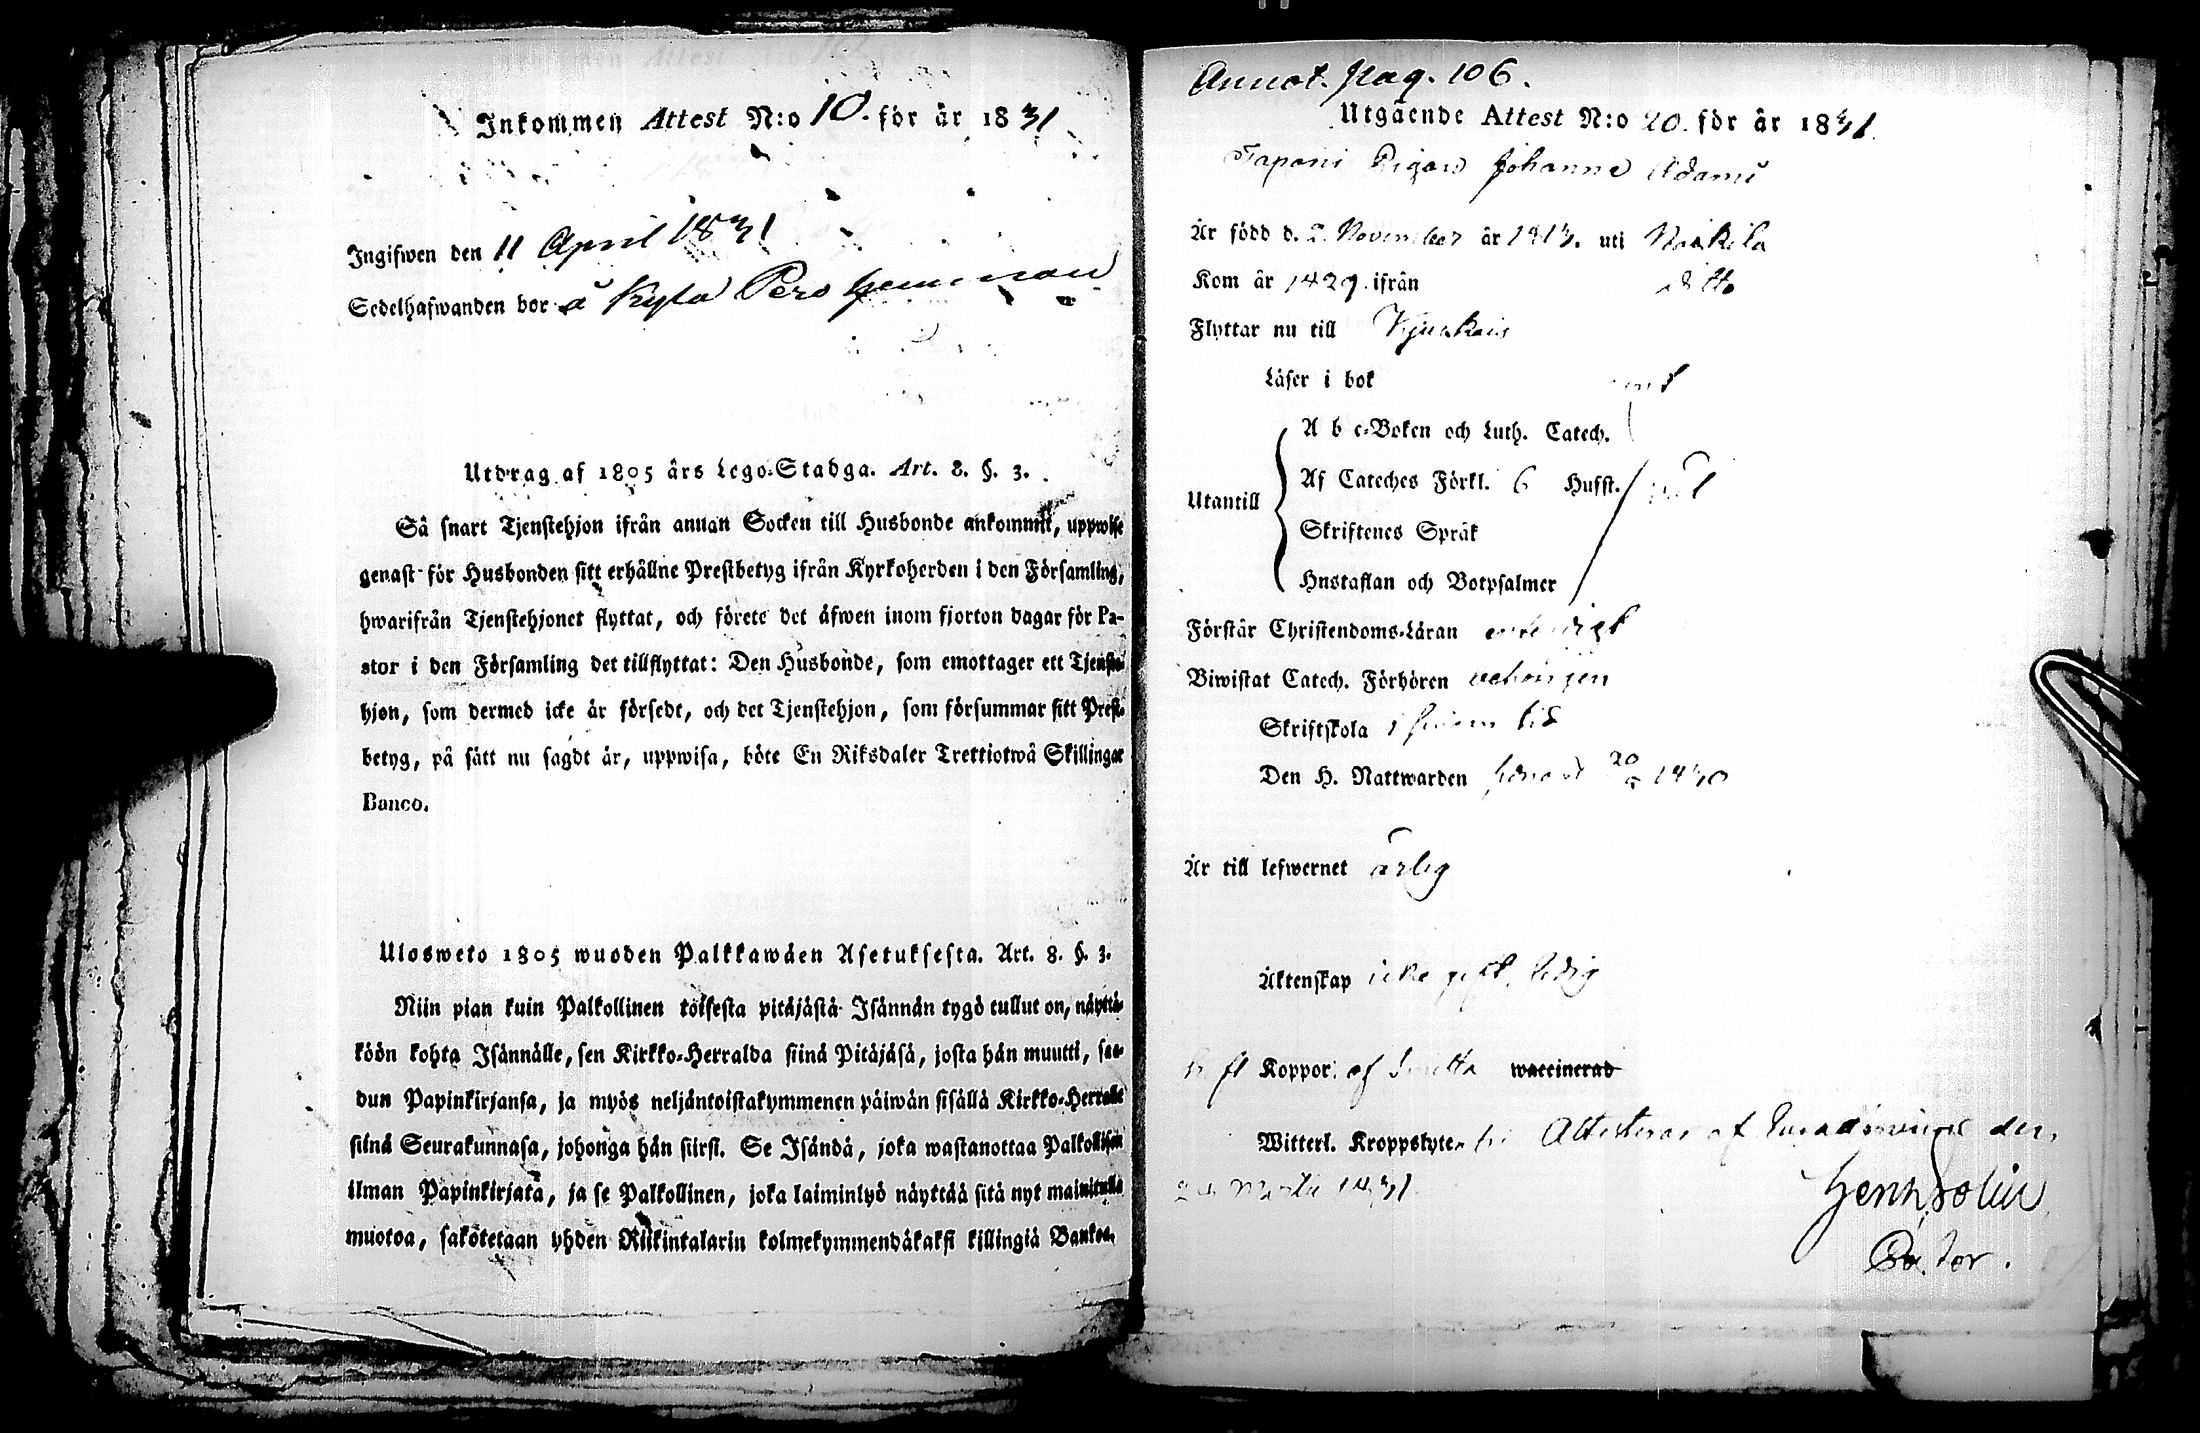 Inkommen Attest N:o 10. för år 1831
Ingifwen den 11 April 1831
Sedelhafwanden bor å Kyla Pers hemman
Utdrag af 1805 års Lego-Stadga. Art. 8. §. 3.
Så snart Tjenstehjon ifrån annan Socken till Husbonde ankommit, uppwise
genast för Husbonden sitt erhållne Prestbetyg ifrån Kyrkoherden i den Församling,
hwarifrån Tjenstehjonet flyttat, och förete det äfwen inom fjorton dagar för Pa-
stor i den Församling det tillflyttat: Den Husbonde, som emottager ett Tjenste-
hjon, som dermed icke är försedt, och det Tjenstehjon, som försummar sitt Prest-
betyg, på sätt nu sagdt är, uppwisa, böte En Riksdaler Trettiotwå Skillingar
Banco.
Ulosweto 1805 wuoden Palkkawäen Asetuksesta. Art. 8. §. 3.
Niin pian kuin Palkollinen toisesta pitäjästä Isännän tygö tullut on, näyttä-
köön kohta Isännälle, sen Kirkko-Herralda siinä Pitäjäsä, josta hän muutti, saa-
dun Papinkirjansa, ja myös neljäntoistakymmenen päiwän sisällä Kirkko-Herralle
siinä Seurakunnasa, johonga hän siirsi. Se Isändä, joka wastanottaa Palkollisen
ilman Papinkirjatä, ja se Palkollinen, joka laiminlyö näyttää sitä nyt mainitulla
muotoa, sakotetaan yhden Riikintalarin kolmekymmendäkaksi killingiä Bankoa.
Annot. pag. 106.
Utgående Attest N:o 20. för år 1831.
Pigan Johanna Adams
Är född d. 2. November år 1813. uti Nookila
Kom år 1829. ifrån ditto
Flyttar nu till
Läser i bok
A b c-Boken och Luth. Catech.
Af Cateches Förkl. 6 Hufst.
Utantill
Skriftenes Språk
Hustaflan och Botpsalmer
Förstår Christendoms-Läran
Biwistat Catech. Förhören
Skriftskola i sinom tid
Den H. Nattwarden senast 20 1830
Är till lefwernet ärlig
Äktenskap icke gift, ledig
Koppor af Smitta waccinerad
Witterl. Kroppslyte Attesteras af den
1831.
Pastor.